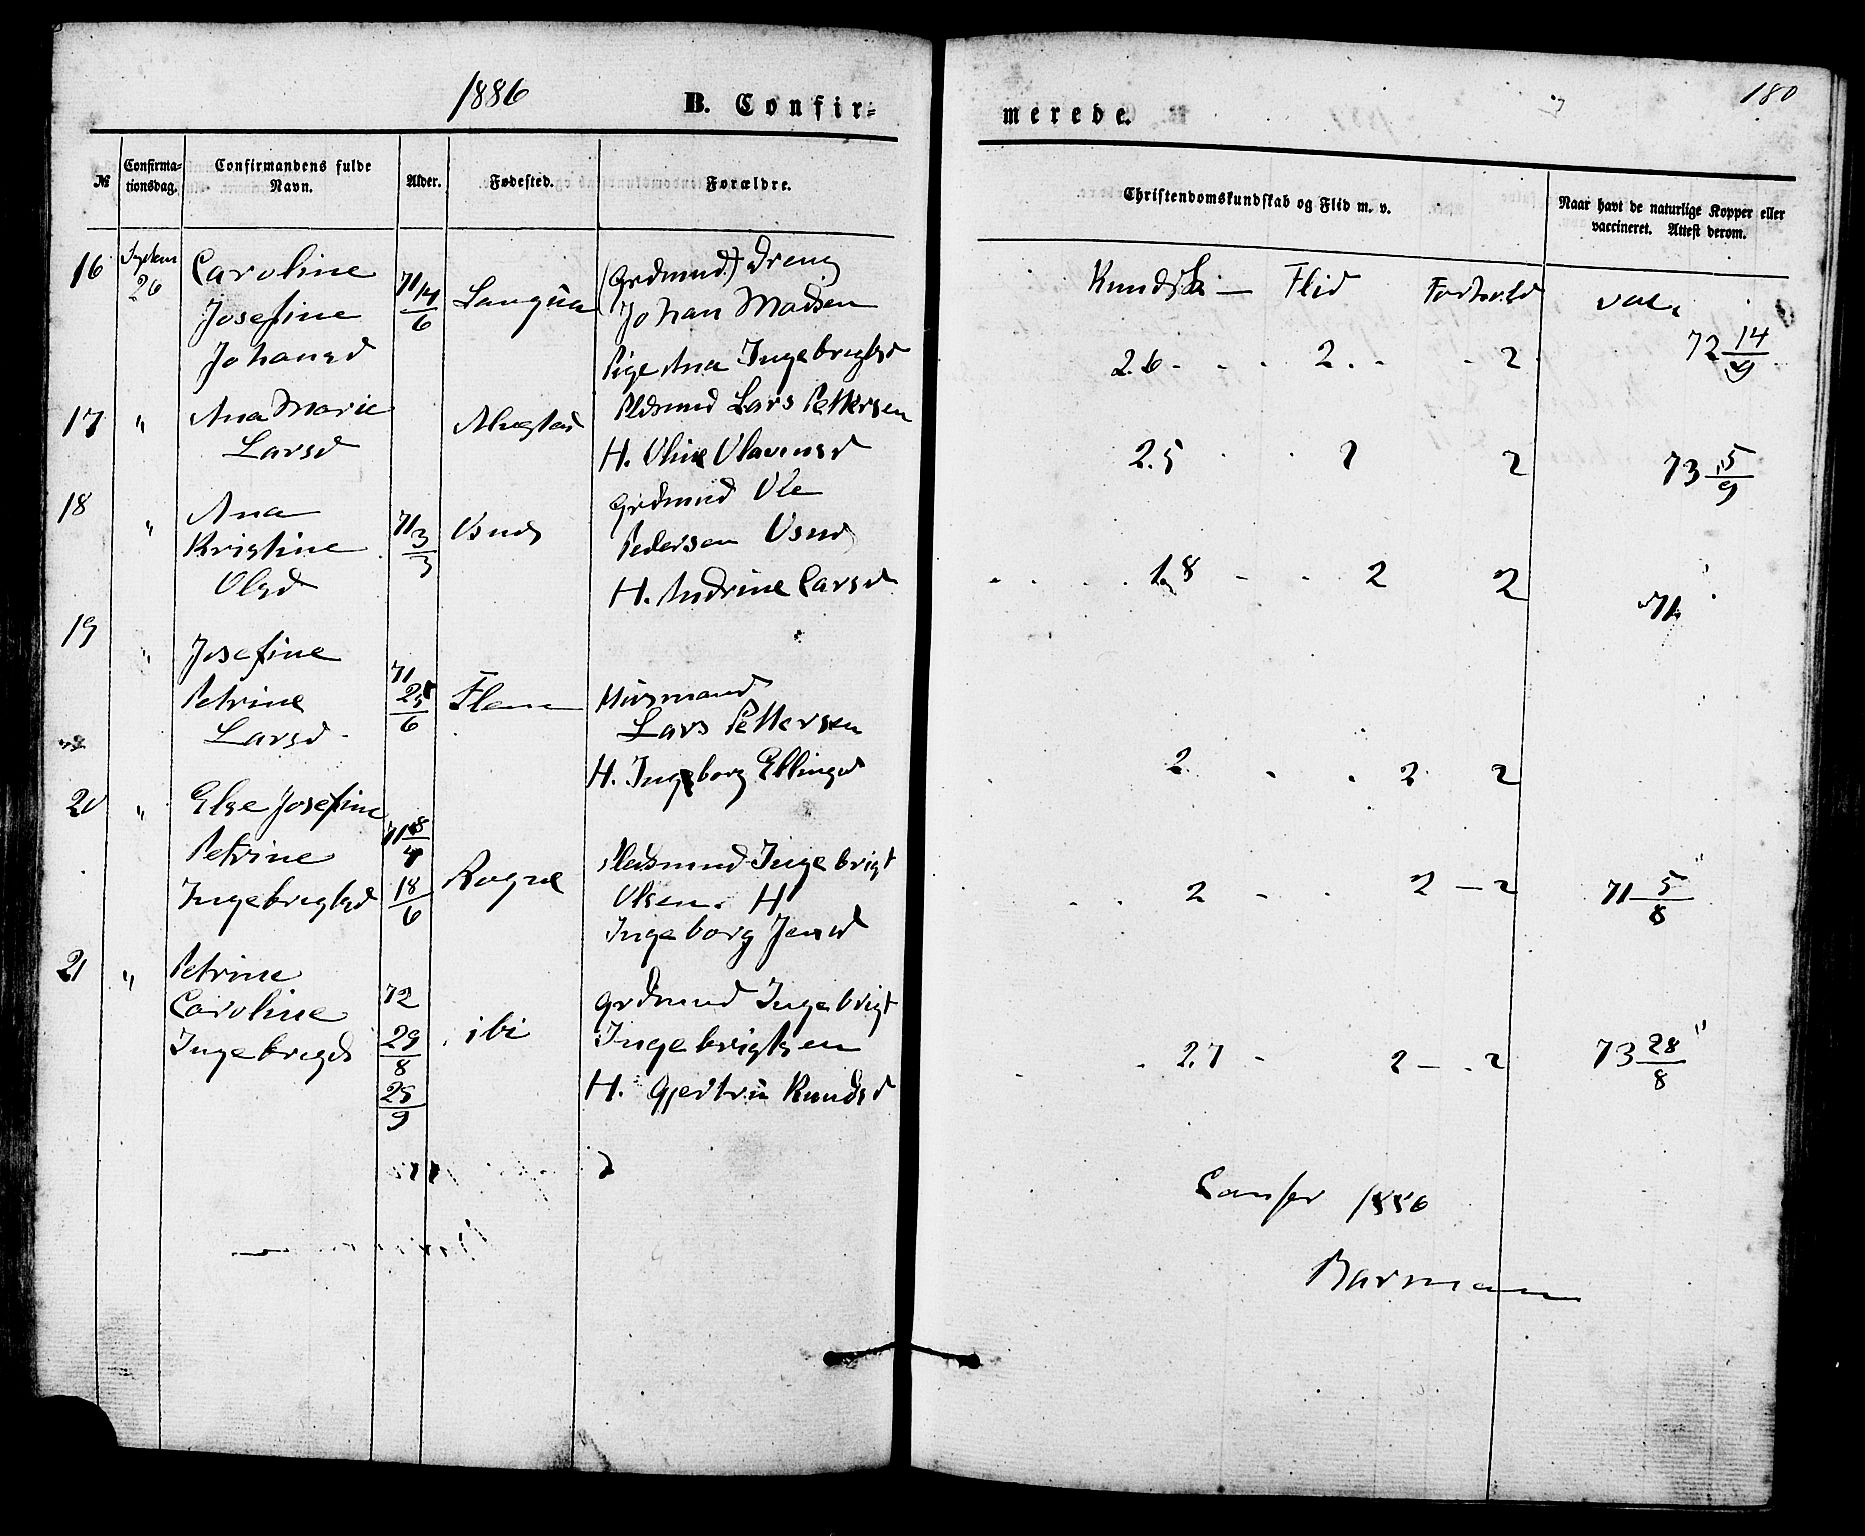 1886
B. Confir-
merede.
180
№
Confirma-
tionsdag.
Confirmandens fulde
Navn.
Alder.
Fødested.
Forældre.
Christendomskundskab og Flid m. v.
Naar havt de naturlige Kopper eller
vaccineret. Attest derom.
Kundsk — Flid Forhold vac.
16
26
Caroline
Josefine
Johansd
71 14
6
Langva
(Grdmnd.) Dreng
Johan Madsen
Pige Ana Ingebrigtsd
2.6 2 2
72 14
9
17
"
Ana Marie
Larsd
Alnestad
Pldsmnd Lars Pettersen
H. Oline Olavensd
2.5 2 2
73 5
9
18
"
Ana
Kristine
Olsd
71 3
3
Usnes
Grdmnd Ole
Pedersen
H. Andrine Larsd
1.8 2 2
71
19
"
Josefine
Petrine
Larsd
71
25
6
Flem
Husmand
Lars Pettersen
H. Ingeborg Ellingsd
2 2 2
20
"
Else Josefine
Petrine
Ingebrigtsd
71 8
4
18
6
Rogne
Pladsmnd Ingebrigt
Olsen. H
Ingeborg Jensd
2 2 — 2
71 5
8
21
"
Petrine
Caroline
Ingebrigtsd
72
29
8
25
9
ibi
Grdmnd Ingebrigt
Ingebrigtsen
H. Gjertru Knudsd
2.7 2 — 2
73 28
8
1886
Barman